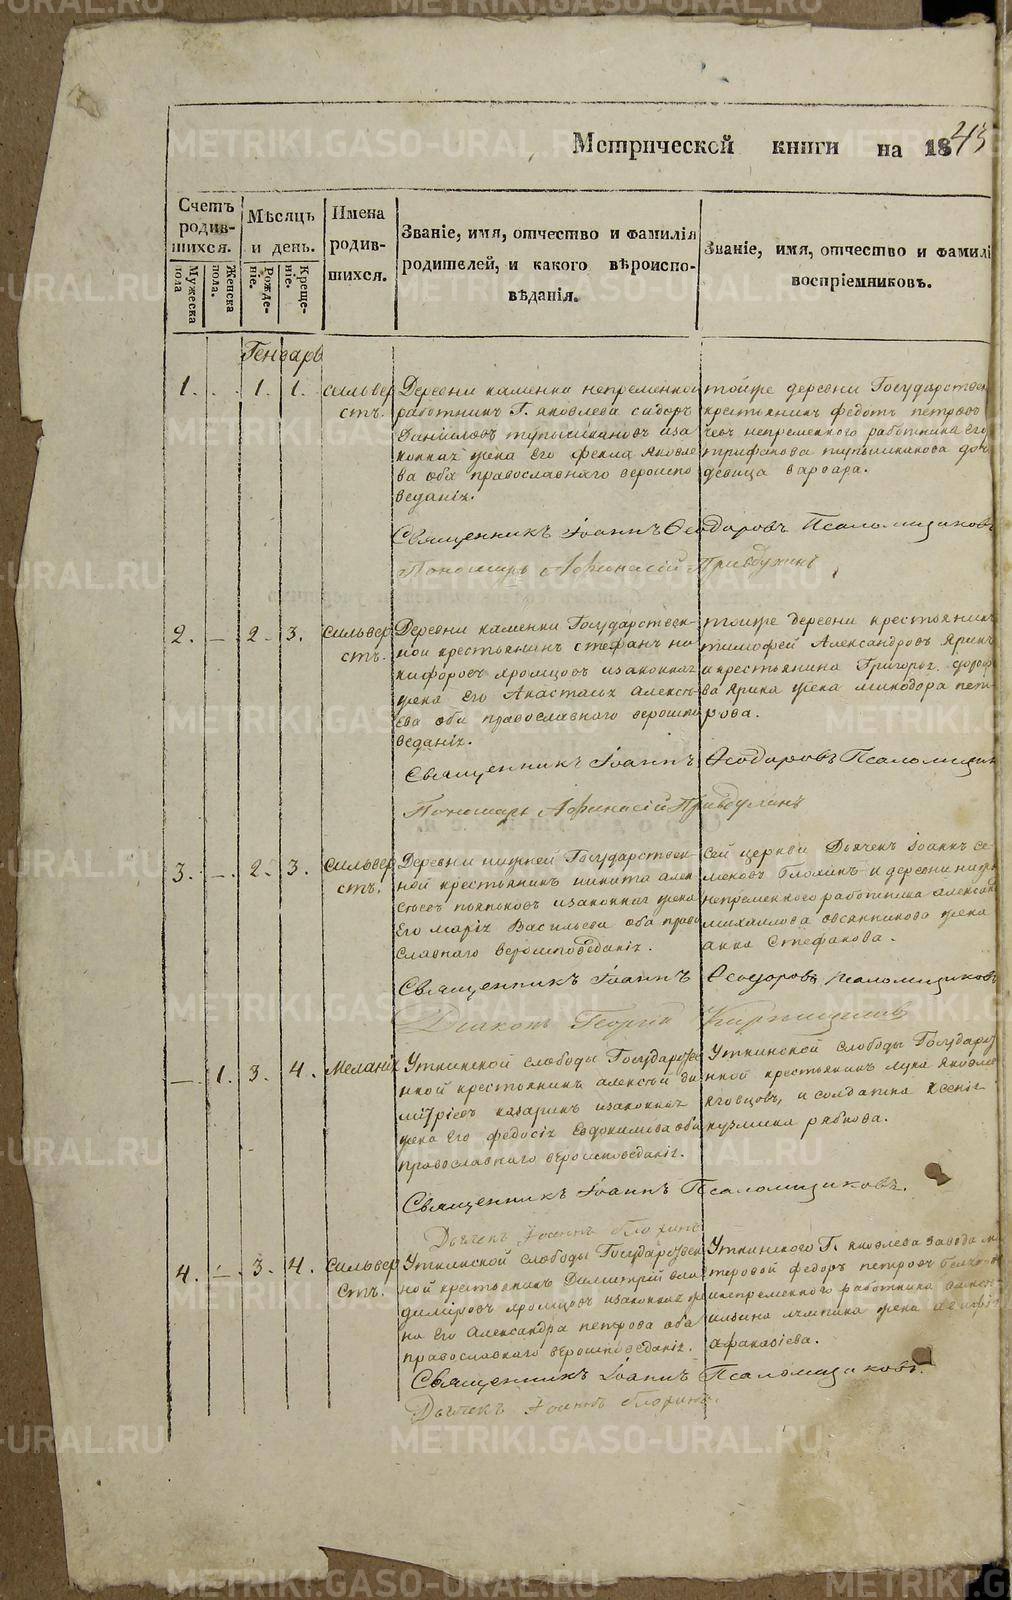 Метрической книги на 1843
Счетъ родив- шихся.
Мужеска пола
Женска пола.
Мѣсяцъ и день.
Рожде- ніе.
Креще- ніе.
Имена родив- шихся.
Званіе, имя, отчество и фамилія
родителей, и какого вѣроиспо-
вѣданія.
Званіе, имя, отчество и фамилі
воспріемниковъ.
Генварь
1. . 1. 1. сильвер
стъ.
Деревни каменки непременной
работникъ Г. яковлева сидоръ
Даниловъ тупышкановъ иза
коннаѧ жена Его фекла яковле
ва оба православнаго вероиспо
веданіѧ.
тойже деревни Государствен
крестьянинъ федотъ петровъ
непременного работника Его
трифанова тупышканова доч
девица варвара.
Священникъ Іоаннъ Ѳеодоровъ Псаломщиковъ
Пономарь Афанасій
2. – 2. 3. сильвер
стъ.
Деревни каменки Государствен-
ной крестьянинъ стефанъ ни
кифоровъ яромцовъ изаконнаѧ
жена Его Анастасіѧ алексѣ
ева оба православнаго вероиспо
веданіѧ.
тойже деревни крестьянинъ
тимофей Александровъ Яринъ
и крестьянина Григорьѧ
ва Ярина жена минодора пет
рова.
Священникъ Іоаннъ Ѳеодоровъ Псаломщик
Пономарь Афанасій
3. – 2. 3. сильвер
стъ.
Деревни нижней Государствен-
ной крестьянинъ никита алек
сеевъ пьянковъ изаконнаѧ жена
Его маріѧ Васильева оба право
славнаго вероисповеданіѧ.
Сей церкви Дьячекъ Іоаннъ се-
меновъ Блохинъ и деревни нижн
непременного работника алексан
михаилова овсянникова жена
анна Стефанова.
Священникъ Іоаннъ Ѳеодоровъ Псаломщиковъ
Диаконъ Георгій Кирпищиков
– 1. 3. 4. Меланіѧ
Уткинской слободы Государствен
ной крестьянинъ алексѣй ди
митріевъ казаринъ изаконнаѧ
жена Его федосіѧ Евдокимова оба
православнаго вероисповеданіѧ.
Уткинской слободы Государст
ной крестьянинъ лука яковле
яговцовъ, и солдатка ксеніѧ
кузмина рябкова.
Священникъ Іоаннъ Псаломщиковъ.
Дьячекъ Іоаннъ Блохинъ
4. – 3. 4. сильвер
стъ.
Уткинской слободы Государствен
ной крестьянинъ Димитрій вла
димировъ яромцовъ изаконнаѧ же
на Его Александра петрова оба
православнаго вероисповеданіѧ.
Уткинского Г. яковлева завода ма
теровой федоръ петровъ
и непременного работника
ильина жена
афанасіева.
Священникъ Іоаннъ Псаломщиковъ.
Дьячекъ Іоаннъ Блохинъ.
METRIKI.GASO-URAL.RU